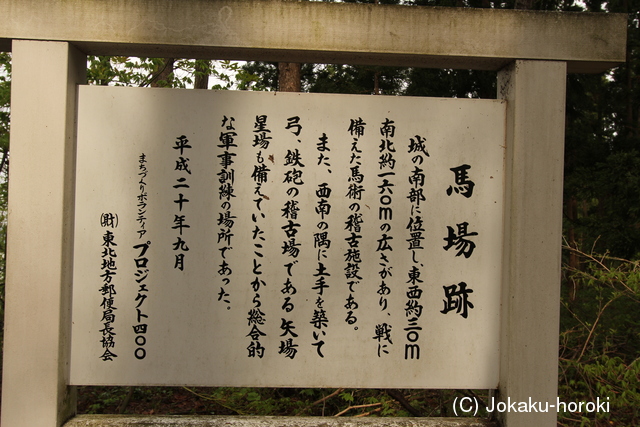 馬場跡
城の南部に位置し、東西約三〇m
南北約一六〇mの広さがあり、戦に
備えた馬術の稽古施設である。
また、西南の隅に土手を築いて
弓、鉄砲の稽古場である矢場
星場も備えていたことから総合的
な軍事訓練の場所であった。
平成二十年九月
まちづくりボランティア プロジェクト四〇〇
(財)東北地方郵便局長協会
(C) Jokaku-horoki